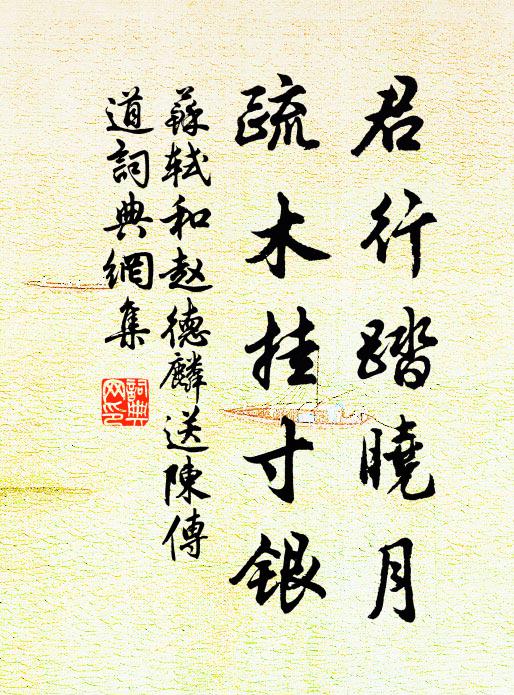 君行踏曉月
疏木挂寸銀
蘇軾和赵德麟送陳傳
道詞典網集
詞典网印